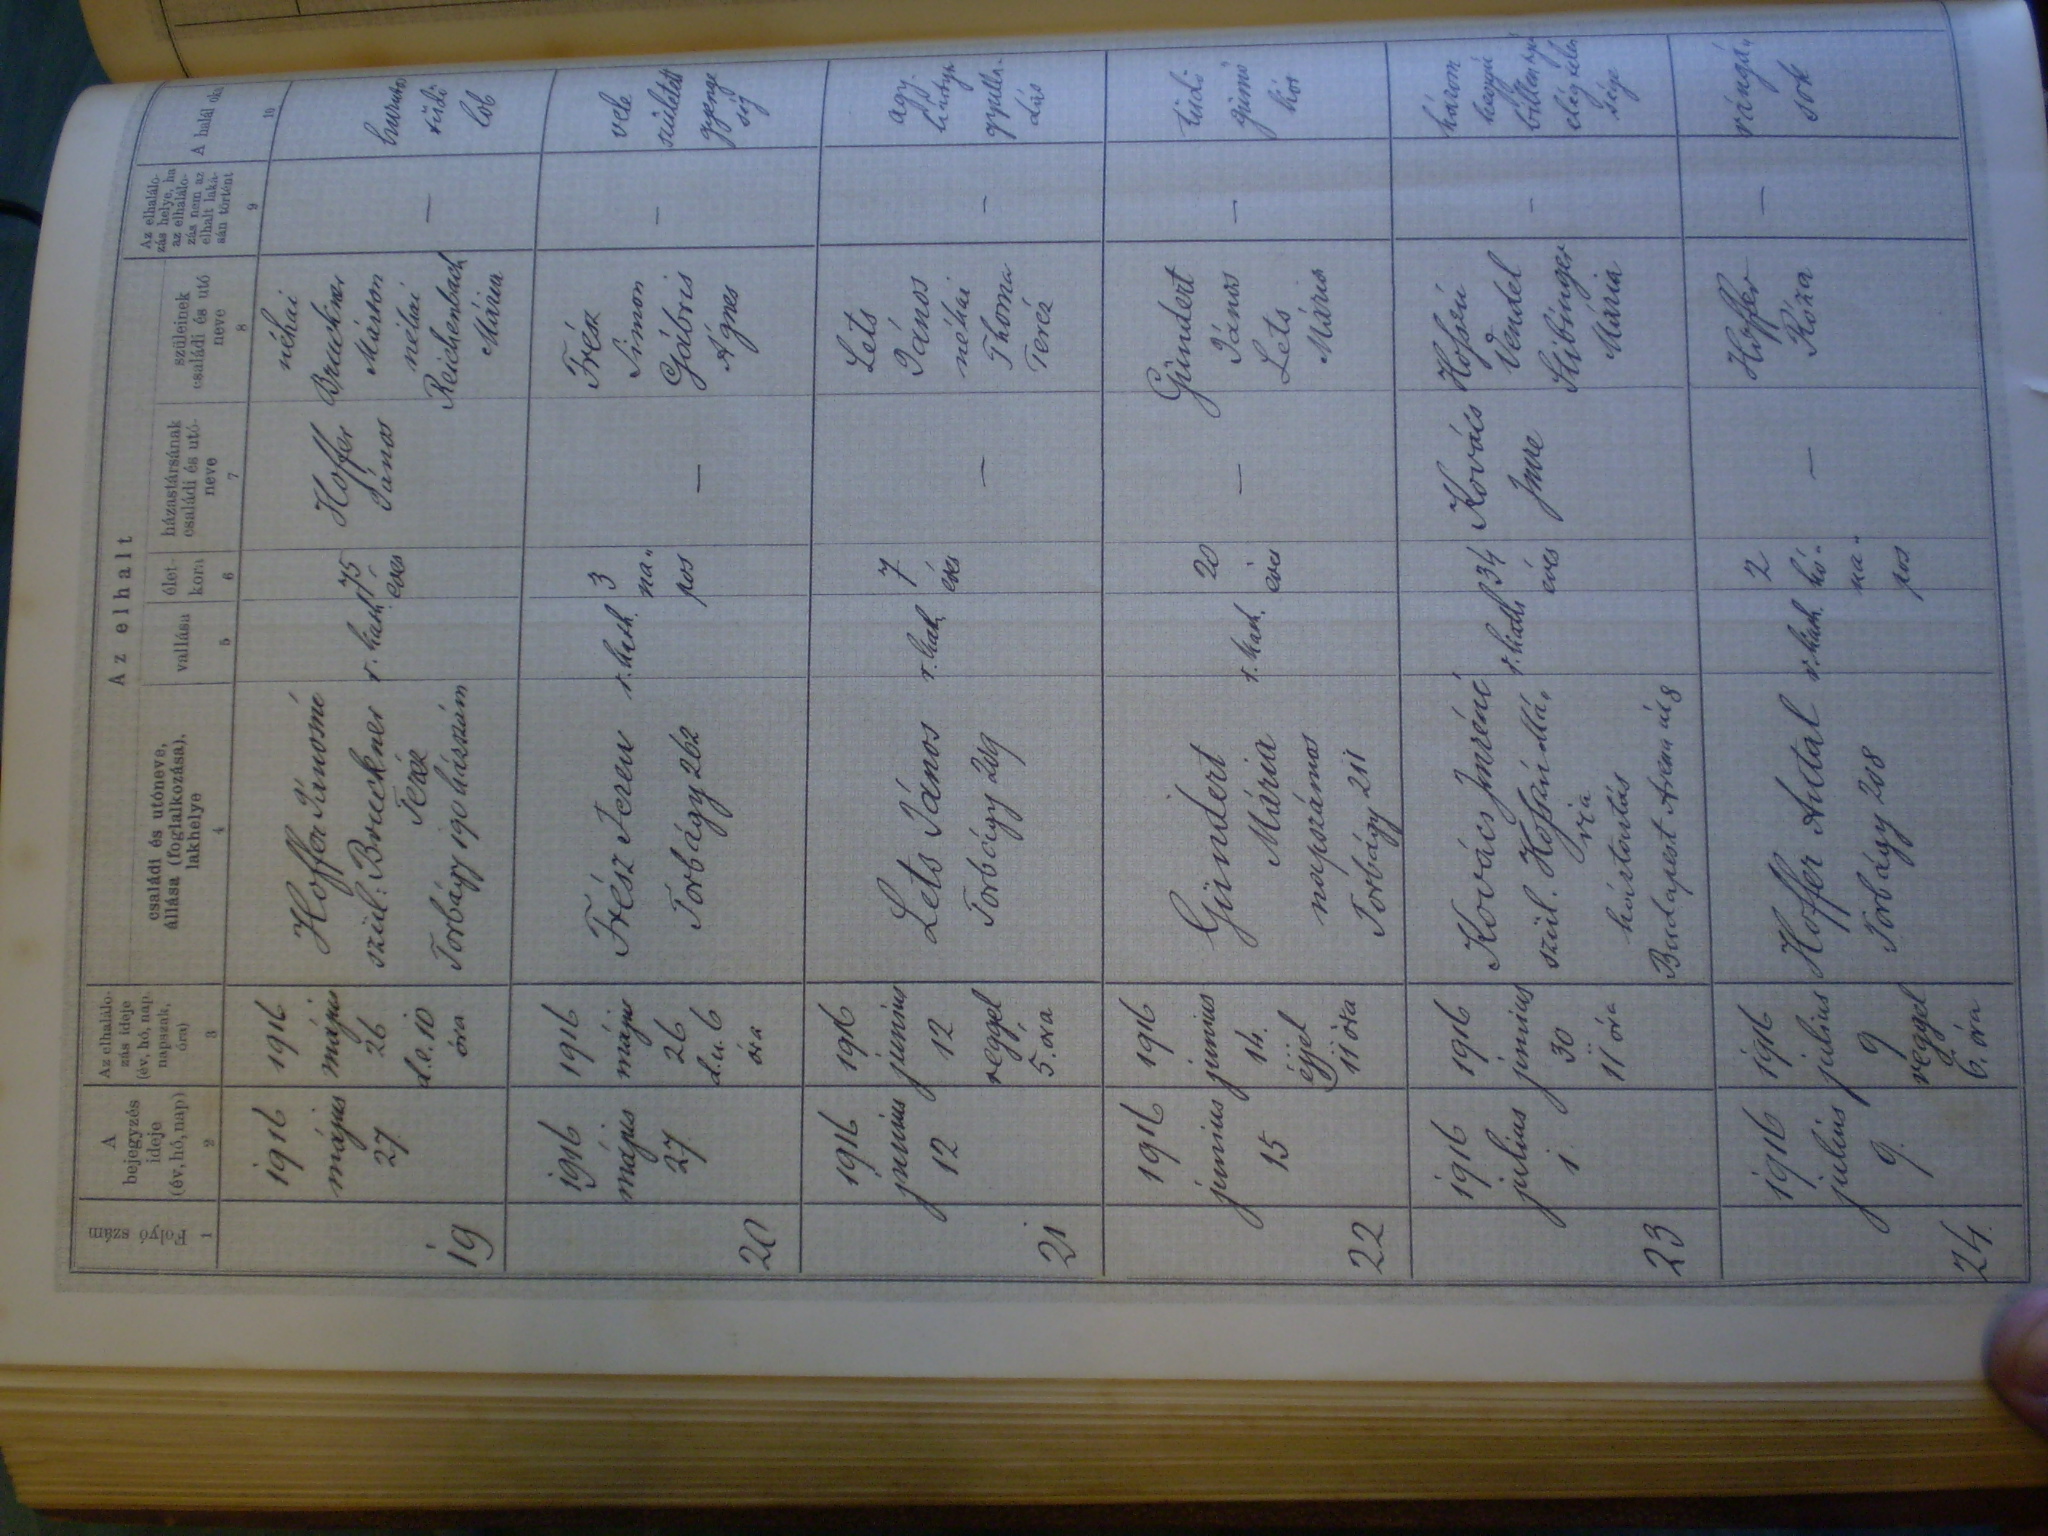 Az elhalt
Folyó szám
A bejegyzés ideje (év, hó, nap)
Az elhalálo-
zás ideje
(év, hó, nap,
napszak,
óra)
családi és utóneve,
állása (foglalkozása),
lakhelye
vallása
élet-
kora
házastársának
családi és utó-
neve
szüleinek
családi és utó
neve
Az elhalálo-
zás helye, ha
az elhalálo-
zás nem az
elhalt laká-
sán történt
A halál oka
1
2
3
4
5
6
7
8
9
10
19
1916
május
27.
1916
május
26
d.e. 10
óra
Hoffer Jánosné
szül: Bruckner
Teréz
Torbágy 190 házszám
r. kath.
75
éves
Hoffer
János
néhai
Bruckner
néhai
Reichenbach
Mária
hurutos
tüdő
lob
20
1916
május
27.
1916
május
26
d.u. 6
óra
Frész Teréz
Torbágy 262
r. kath.
3
na-
pos
—
Frész
Simon
Gábris
Ágnes
—
vele
született
gyenge
ség
21
1916
junius
12
1916
junius
12
reggel
5. óra
Lets János
Torbágy 249
r. kath.
7
éves
—
Lets
János
néhai
Thoma
Teréz
—
agy-
gyulla-
dás
22
1916
junius
15
1916
junius
14.
éjjel
11 óra
Gündert
Mária
napszámos
Torbágy 211
r. kath.
20
éves
—
Gündert
János
Lets
Mária
—
tüdő
gümő
kór
23
1916
julius
1.
1916
junius
30
11 óra
Kovács Imréné
szül.
háztartás
Budapest Aréna út 8
r. kath.
34
éves
Kovács
Imre
Vendel
Stibinger
Mária
—
három
hegyű
24.
1916
julius
9.
1916
julius
9
reggel
6. óra
Hoffer Antal
Torbágy 208
r. kath.
2
hó-
na-
pos
—
Hoffer
Róza
—
rángá-
sok